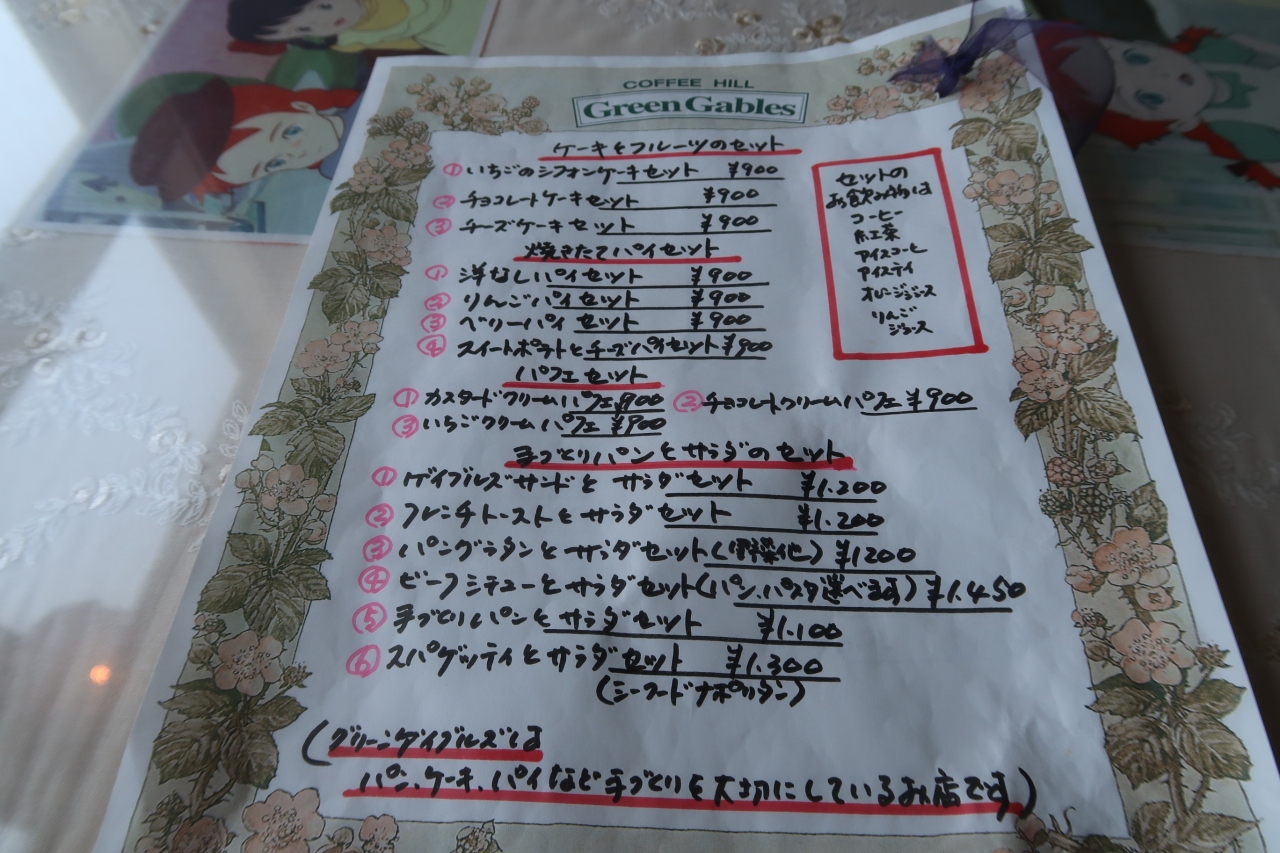 COFFEE HILL
Green Gables
ケーキとフルーツのセット
① いちごのシフォンケーキセット ¥900
② チョコレートケーキセット ¥900
③ チーズケーキセット ¥900
焼きたてパイセット
① 洋なしパイセット ¥900
② りんごパイセット ¥900
③ ベリーパイセット ¥900
④ スイートポテトとチーズパイセット ¥900
パフェセット
① カスタードクリームパフェ ¥900 ② チョコレートクリームパフェ ¥900
③ いちごクリームパフェ ¥900
手づくりパンとサラダのセット
① ゲイブルズサンドとサラダセット ¥1.200
② フレンチトーストとサラダセット ¥1.200
③ パングラタンとサラダセット(野菜他) ¥1200
④ ビーフシチューとサラダセット(パン、パスタ選べます) ¥1.450
⑤ 手づくりパンとサラダセット ¥1.100
⑥ スパゲッティとサラダセット ¥1.300
(シーフードナポリタン)
(グリーンゲイブルズは
パン、ケーキ、パイなど手づくりを大切にしているお店です)
セットの
お飲み物は
コーヒー
紅茶
アイスコーヒー
アイスティ
オレンジジュース
りんご
ジュース